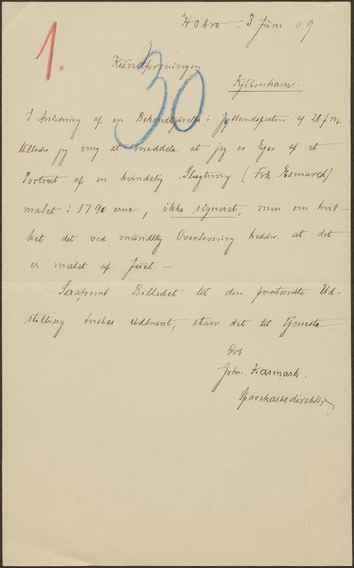 Hobro 3 Juni 09
1.
30
Kunstforeningen
Kjøbenhavn.
I Anledning af en Bekendtgørelse i Jyllandsposten af 28 f. M.
tillader jeg mig at meddele at jeg er Ejer af et
Portræt af en kvindelig Slægtning (Frk. Esmarch)
malet i 1790 erne, ikke signeret, men om hvil-
ket det ved mundtlig Overlevering hedder at det
er malet af Juel. —
Saafremt Billedet til den paatænkte Ud-
stilling ønskes udlaant, staar det til Tjeneste
Erb
John.
Sparekassedirektør